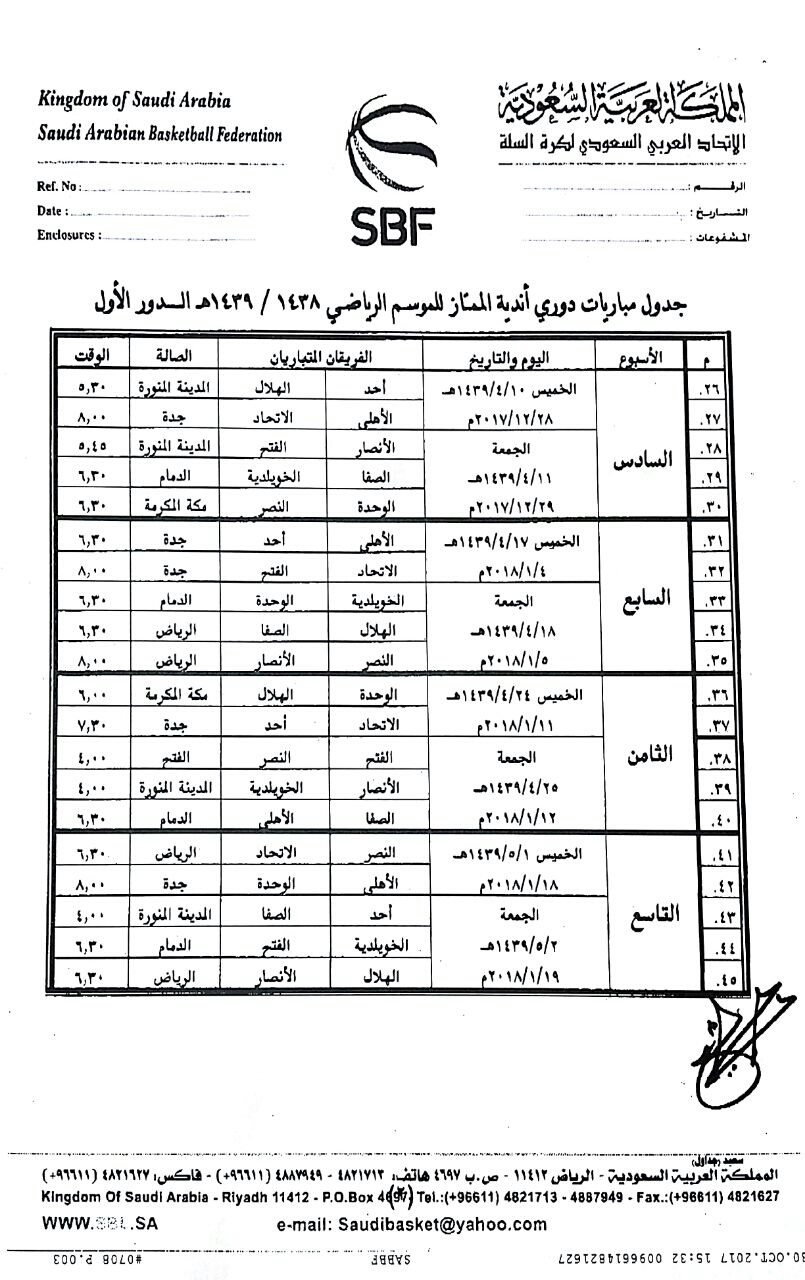 Kingdom of Saudi Arabia
Saudi Arabian Basketball Federation
Ref. No :
Date :
Enclosures :
SBF
المملكة العربية السعودية
الإتحاد العربي السعودي لكرة السلة
الرقـــم :
التـــاريخ :
المشفوعات :
جدول مباريات دوري أندية الممتاز للموسم الرياضي ١٤٣٨ / ١٤٣٩هـ الـدور الأول
م الأسبوع اليوم والتاريخ الفريقان المتباريان الصالة الوقت
٢٦. السادس الخميس ١٤٣٩/٤/١٠هـ أحد الهلال المدينة المنورة ٥,٣٠
٢٧. ٢٠١٧/١٢/٢٨م الأهلي الاتحاد جدة ٨,٠٠
٢٨. الجمعة الأنصار الفتح المدينة المنورة ٥,٤٥
٢٩. ١٤٣٩/٤/١١هـ الصفا الخويلدية الدمام ٦,٣٠
٣٠. ٢٠١٧/١٢/٢٩م الوحدة النصر مكة المكرمة ٦,٣٠
٣١. السابع الخميس ١٤٣٩/٤/١٧هـ الأهلي أحد جدة ٦,٣٠
٣٢. ٢٠١٨/١/٤م الاتحاد الفتح جدة ٨,٠٠
٣٣. الجمعة الخويلدية الوحدة الدمام ٦,٣٠
٣٤. ١٤٣٩/٤/١٨هـ الهلال الصفا الرياض ٦,٣٠
٣٥. ٢٠١٨/١/٥م النصر الأنصار الرياض ٨,٠٠
٣٦. الثامن الخميس ١٤٣٩/٤/٢٤هـ الوحدة الهلال مكة المكرمة ٦,٠٠
٣٧. ٢٠١٨/١/١١م الاتحاد أحد جدة ٧,٣٠
٣٨. الجمعة الفتح النصر الفتح ٤,٠٠
٣٩. ١٤٣٩/٤/٢٥هـ الأنصار الخويلدية المدينة المنورة ٤,٠٠
٤٠. ٢٠١٨/١/١٢م الصفا الأهلي الدمام ٦,٣٠
٤١. التاسع الخميس ١٤٣٩/٥/١هـ النصر الاتحاد الرياض ٦,٣٠
٤٢. ٢٠١٨/١/١٨م الأهلي الوحدة جدة ٨,٠٠
٤٣. الجمعة أحد الصفا المدينة المنورة ٤,٠٠
٤٤. ١٤٣٩/٥/٢هـ الخويلدية الفتح الدمام ٦,٣٠
٤٥. ٢٠١٨/١/١٩م الهلال الأنصار الرياض ٦,٣٠
سعيد (جداول)
المملكة العربية السعودية - الرياض ١١٤١٢ - ص.ب ٤٦٩٧ هاتف: ٤٨٢١٧١٣ - ٤٨٨٧٩٤٩ (٩٦٦١١+) - فاكس: ٤٨٢١٦٢٧ (٩٦٦١١+)
Kingdom Of Saudi Arabia - Riyadh 11412 - P.O.Box 4697 Tel.:(+96611) 4821713 - 4887949 - Fax.:(+96611) 4821627
WWW.SBL.SA e-mail: Saudibasket@yahoo.com
30.OCT.2017 15:32 0096614821627 SABBF #0708 P.003